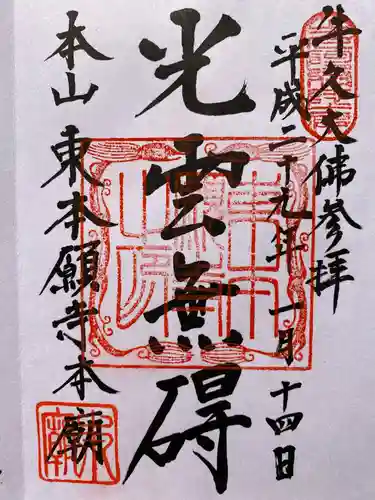 牛久大佛參拝
平成二十九年 一月 十四日
光雲無碍
本山 東本願寺本廟